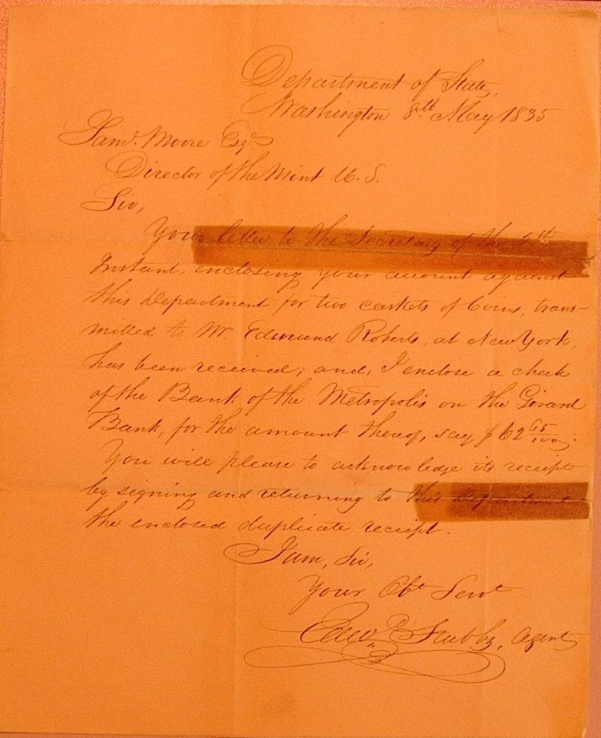 Department of State,
Washington 8th May 1835
Saml. Moore Esqr.
Director of the Mint U.S.
Sir,
Your letter to the Secretary of the 5th
Instant, enclosing your account against
this Department for two caskets of Coins, trans-
mitted to Mr. Edmund Roberts, at New York,
has been received; and, I enclose a check
of the Bank of the Metropolis on the Girard
Bank, for the amount thereof, say $62 65/100;
You will please to acknowledge its receipt
by signing and returning to this Department
the enclosed duplicate receipt.
I am, Sir,
Your Obt Servt
Edwd. Stubbs, Agent